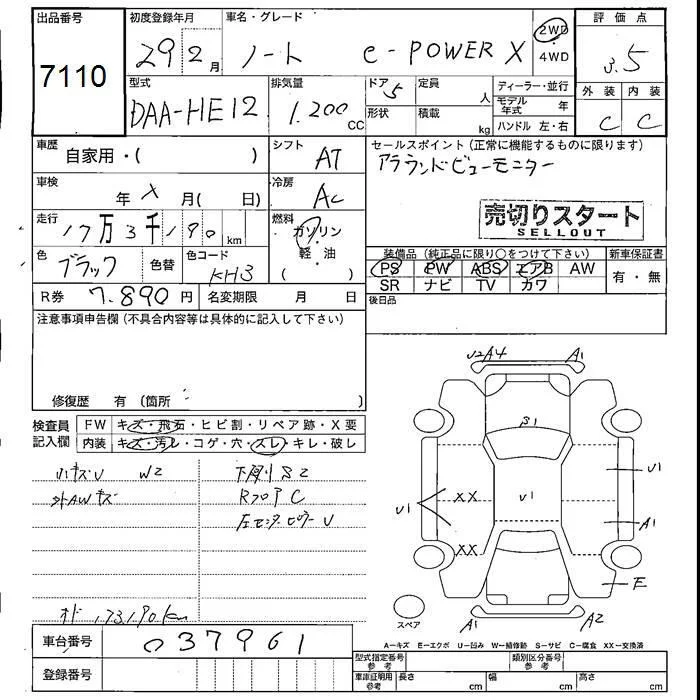 出品番号 初度登録年月 車名・グレード 評価点
7110
29 2月 ノート e-POWER X 2WD 4WD 3.5
型式 排気量 ドア 定員 ディーラー・並行 外装 内装
DAA-HE12 1.200 CC 5 人 モデル年式 年
形状 積載 kg ハンドル 左・右 C C
車歴 自家用・( ) シフト AT セールスポイント(正常に機能するものに限ります)
アラウンドビューモニター
車検 年 X 月( 日) 冷房 AC
売切りスタート
SELLOUT
走行 17万3千190km 燃料 ガソリン 軽・油
色 ブラック 色替 色コード KH3
装備品(純正品に限り○をつけて下さい) 新車保証書
PS PW ABS エアB AW 有・無
SR ナビ TV カワ
R券 7.890円 名変期限 月 日 後日品
注意事項申告欄(不具合内容等は具体的に記入して下さい)
修復歴 有(箇所 )
検査員記入欄 FW キズ・飛石・ヒビ割・リペア跡・X要
内装 キズ・汚レ・コゲ・穴・スレ・キレ・破レ
小キズU W2 下廻りS2
外AWキズ RフロアC
左センターピラーU
オド 173190km
U2A4 A1
B1
U1
XX U1
U1 A1
XX
E
A1 A2
スペア
車台番号 037961
A-キズ E-エクボ U-凹み W-補修跡 S-サビ C-腐食 XX-交換済
登録番号 型式指定番号 参考 類別区分番号 参考
車庫証明用 参考 長さ cm 幅 cm 高さ cm